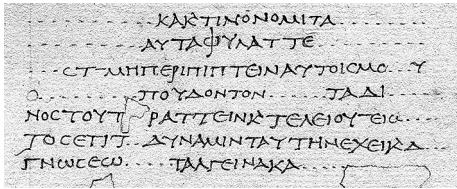 ΚΑΚϹΤΙΝΟΝΟΜΙΤΑ
ΑΥΤΑΦΥΛΑΤΤΕ
ϹΤ ΜΗΠΕΡΙΠΙΠΤΕΙΝΑΥΤΟΙϹΜΟ Υ
ΠΟΥΔΟΝΤΟΝ ΤΑΔΙ
ΝΟϹΤΟΥΠ ΡΑΤΤΕΙΝΚ ΤΕΛΕΙΟΥΤΕΙΩ
ΤΟϹΕΤΙΤ ΔΥΝΑΜΙΝΤΑΥΤΗΝΕΧΕΙΚΔ
ΓΝΩϹΕϹΩ ΤΑΛΓΕΙΝΑΚΑ